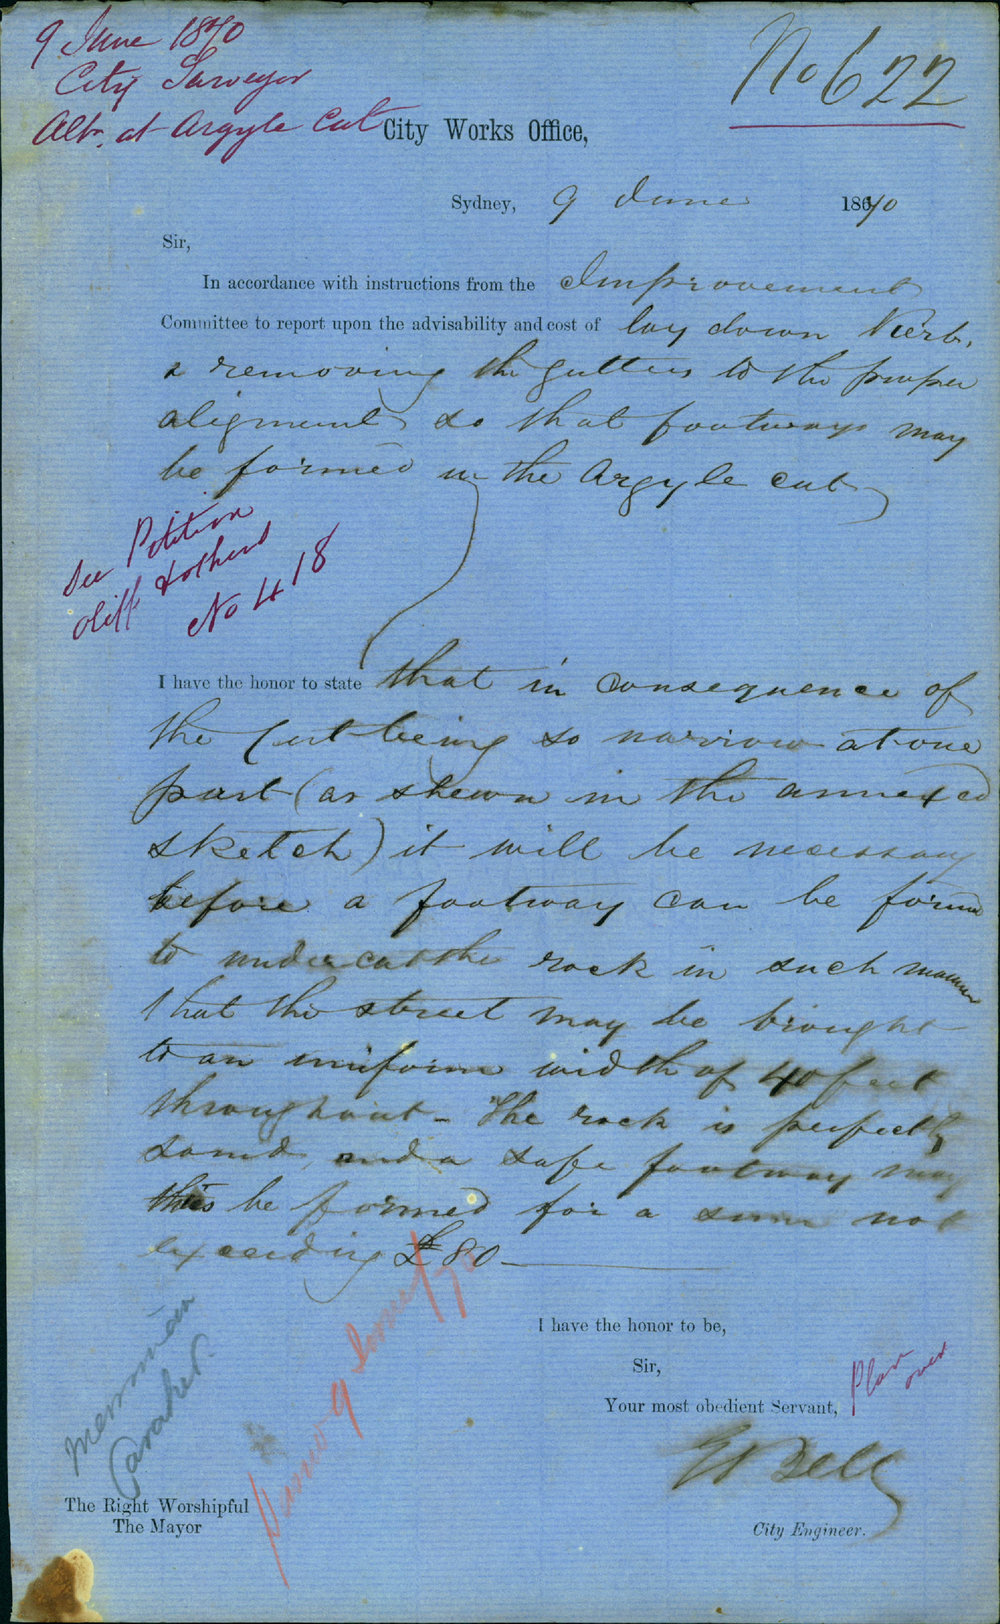 9 June 1870
City Surveyor
Altn. at Argyle Cut
No 622
City Works Office,
Sydney, 9 June 1870
Sir,
In accordance with instructions from the Improvement
Committee to report upon the advisability and cost of lay down Kerb,
& removing the gutters to the proper
aligment so that footways may
be formed in the Argyle cut
See Petition
Oliff & others
No 418
I have the honor to state that in consequence of
the Cut being so narrow at one
part (as shewn in the annexed
sketch) it will be necessary
before a footway can be formed
to undercut the rock in such manner
that the street may be brought
to an uniform width of 40 feet
throughout - The rock is perfectly
sound, and a safe footway may
thus be formed for a sum not
exceeding £80
I have the honor to be,
Sir,
Your most obedient Servant,
Plan
over
E Bell
City Engineer.
Merriman
Caraher.
9 June /70
The Right Worshipful
The Mayor